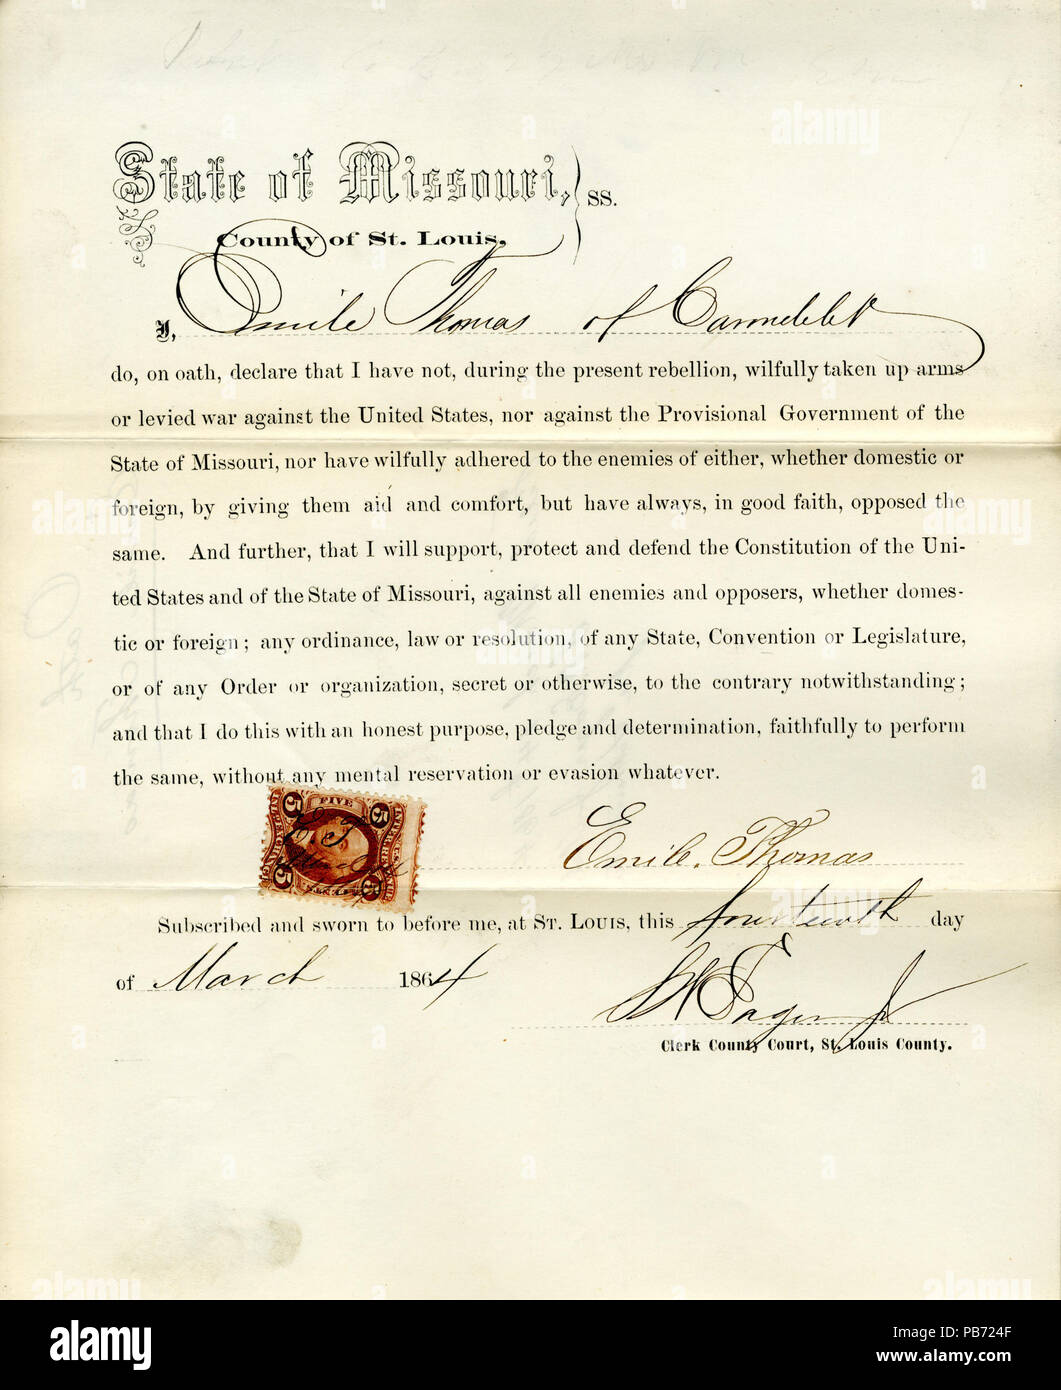 State of Missouri, } SS.
County of St. Louis,
I, Emile Thomas of Carondelet
do, on oath, declare that I have not, during the present rebellion, wilfully taken up arms
or levied war against the United States, nor against the Provisional Government of the
State of Missouri, nor have wilfully adhered to the enemies of either, whether domestic or
foreign, by giving them aid and comfort, but have always, in good faith, opposed the
same. And further, that I will support, protect and defend the Constitution of the Uni-
ted States and of the State of Missouri, against all enemies and opposers, whether domes-
tic or foreign; any ordinance, law or resolution, of any State, Convention or Legislature,
or of any Order or organization, secret or otherwise, to the contrary notwithstanding;
and that I do this with an honest purpose, pledge and determination, faithfully to perform
the same, without any mental reservation or evasion whatever.
5 FIVE 5
E. T.
5 CENTS 5
Emile. Thomas
Subscribed and sworn to before me, at St. Louis, this fourteenth day
of March 1864
Jr
Clerk County Court, St. Louis County.
alamy
Image ID: PB724F
www.alamy.com